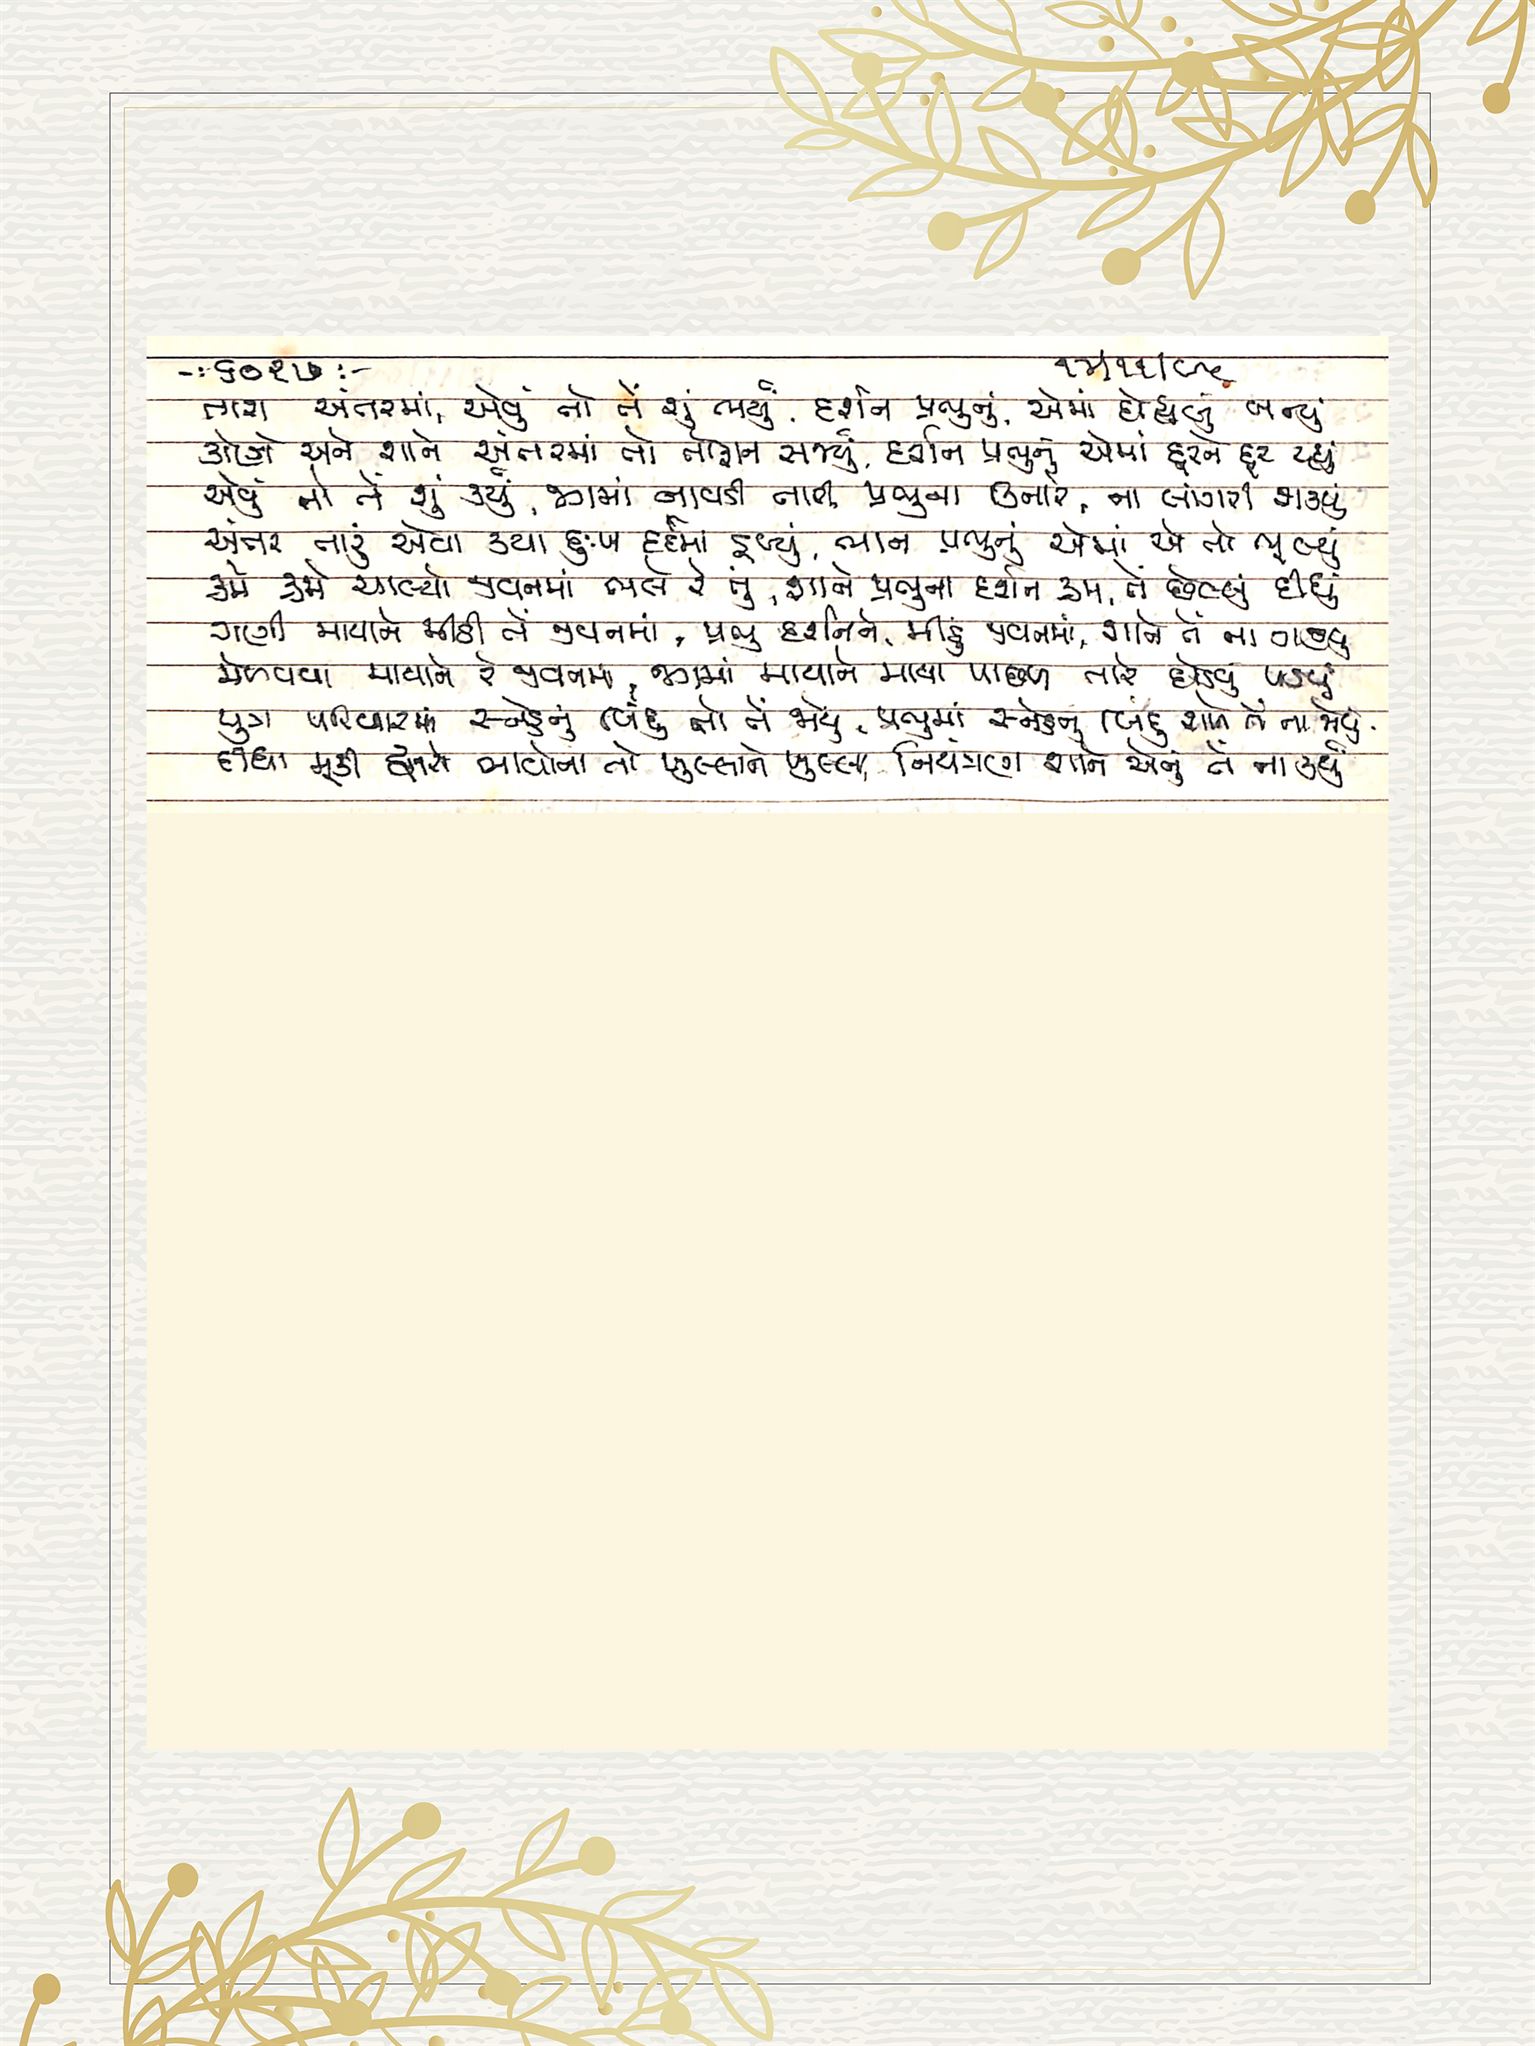 -:૬૦૨૭:- ૧૫/૧૧/૯૫
તારા અંતરમાં, એવું તો તેં શું ભર્યું, દર્શન પ્રભુનું, એમાં દોહ્યલું બન્યું
કોણે અને શાને અંતરમાં તો તોફાન સર્જ્યું, દર્શન પ્રભુનું એમાં દૂરને દૂર રહ્યું
એવું તો તેં શું કર્યું, જેમાં નાવડી તારી, પ્રભુના કિનારે, ના લાંગરી શક્યું
અંતર તારું એવા કયા દુઃખ દર્દમાં ડૂબ્યું, ભાન પ્રભુનું એમાં એ તો ભૂલ્યું
ક્રમે ક્રમે ચાલ્યો જીવનમાં ભલે રે તું, શાને પ્રભુના દર્શન ક્રમ, તેં છેલ્લું દીધું
ગણી માયાને મીઠી તેં જીવનમાં, પ્રભુ દર્શનને, મીઠું જીવનમાં, શાને તેં ના ગણ્યું
મેળવવા માયાને રે જીવનમાં, જેમાં માયાને માયા પાછળ તારે દોડવું પડયું
પુત્ર પરિવારમાં સ્નેહનું બિંદુ તો તેં જોયું, પ્રભુમાં સ્નેહનું બિંદુ શાને તેં ના જોયું.
દીધા મૂકી દોર ભાવોના તો ખુલ્લાને ખુલ્લા, નિયંત્રણ શાને એનું તેં ના કર્યું